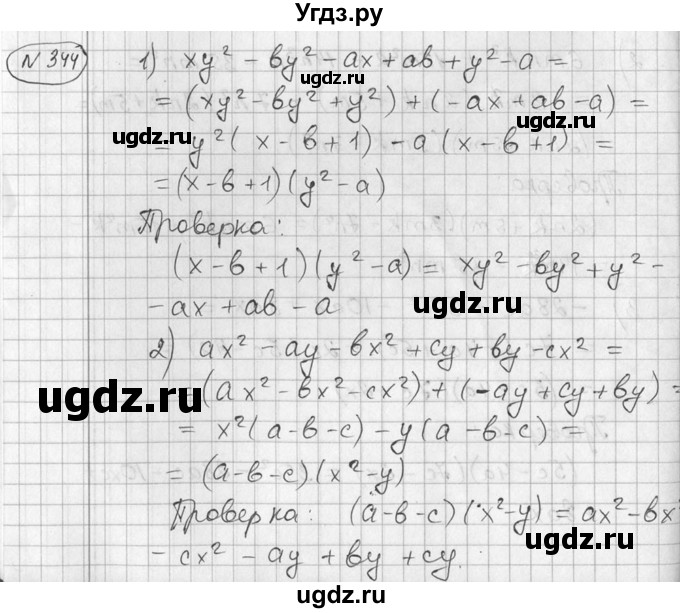 Угдз.ру
N 344
1) xy² - вy² - ax + aв + y² - a =
= (xy² - вy² + y²) + (-ax + aв - a) =
= y²( x - в + 1) - a (x - в + 1) =
= (x - в + 1) (y² - a)
Проверка:
(x - в + 1) (y² - a) = xy² - вy² + y² -
- ax + aв - a
2) ax² - ay - вx² + cy + вy - cx² =
(ax² - вx² - cx²) + (-ay + cy + вy) =
= x²(a - в - c) - y(a - в - c) =
= (a - в - c) (x² - y)
Проверка: (a - в - c) (x² - y) = ax² - вx²
- cx² - ay + вy + cy.
ugdz.ru
ugdz.ru
ugdz.ru
ugdz.ru
ugdz.ru
ugdz.ru
ugdz.ru
ugdz.ru